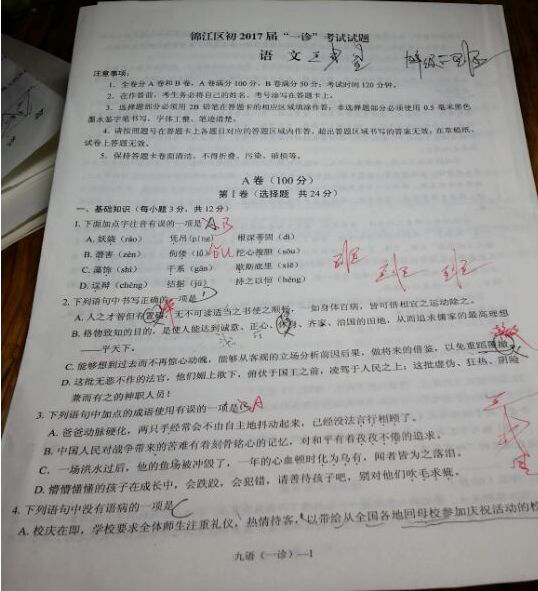 锦江区初2017届“一诊”考试试题
语 文
注意事项：
1. 全卷分A卷和B卷，A卷满分100分，B卷满分50分；考试时间120分钟。
2. 在作答前，考生务必将自己的姓名、考号涂写在答题卡上。
3. 选择题部分必须用2B铅笔在答题卡的相应区域填涂作答；非选择题部分必须使用0.5毫米黑色
墨水签字笔书写，字体工整、笔迹清楚。
4. 请按照题号在答题卡上各题目对应的答题区域内作答，超出答题区域书写的答案无效；在草稿纸、
试卷上答题无效。
5. 保持答题卡卷面清洁，不得折叠、污染、破损等。
A卷（100分）
第Ⅰ卷（选择题 共24分）
一、基础知识（每小题3分，共12分）
1. 下面加点字注音有误的一项是 B
A. 妖娆（ráo） 凭吊 根深蒂固（dì）
B. 佝偻 GOU 挖心搜胆（sōu）
C. 干系（gān） 歇斯底里（xiē）
D. 拮据（jū） 持之以恒（héng）
2. 下列语句中书写正确的一项是
A. 人之才智但有 无不可读适当之书使之顺畅，一如身体百病，皆可借相宜之运动除之。
B. 格物致知的目的，是使人能达到诚意、正心、修身、齐家、治国的田地，从而追求儒家的最高理想
——平天下。
C. 能够想到过去而不再惊心动魄，能够从客观的立场分析前因后果，做将来的借鉴，以免重蹈覆辙
D. 这批无恶不作的法官，他们媚上欺下，俯伏于国王之前，凌驾于人民之上；这批虚伪、狂热、阴险
兼而有之的神职人员！
3. 下列语句中加点的成语使用有误的一项是 A
A. 爸爸动脉硬化，两只手经常会不由自主地抖动起来，已经没法言行相顾了。
B. 中国人民对战争带来的苦难有着刻骨铭心的记忆，对和平有着孜孜不倦的追求。
C. 一场洪水过后，他的鱼塘被冲毁了，一年的心血顿时化为乌有，闻者皆为之落泪。
D. 懵懵懂懂的孩子在成长中，会跌跤，会犯错，请善待孩子吧，别对他们吹毛求疵。
4. 下列语句中没有语病的一项是 C
A. 校庆在即，学校要求全体师生注重礼仪，热情待客，以带给从全国各地回母校参加庆祝活动的校
九语（一诊）—1
班
班
班